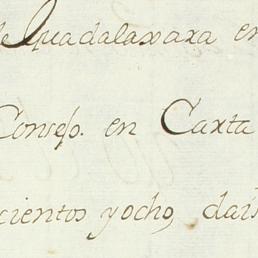 de Guadalaxara en
Consejo. en Carta
cientos y ocho, dais